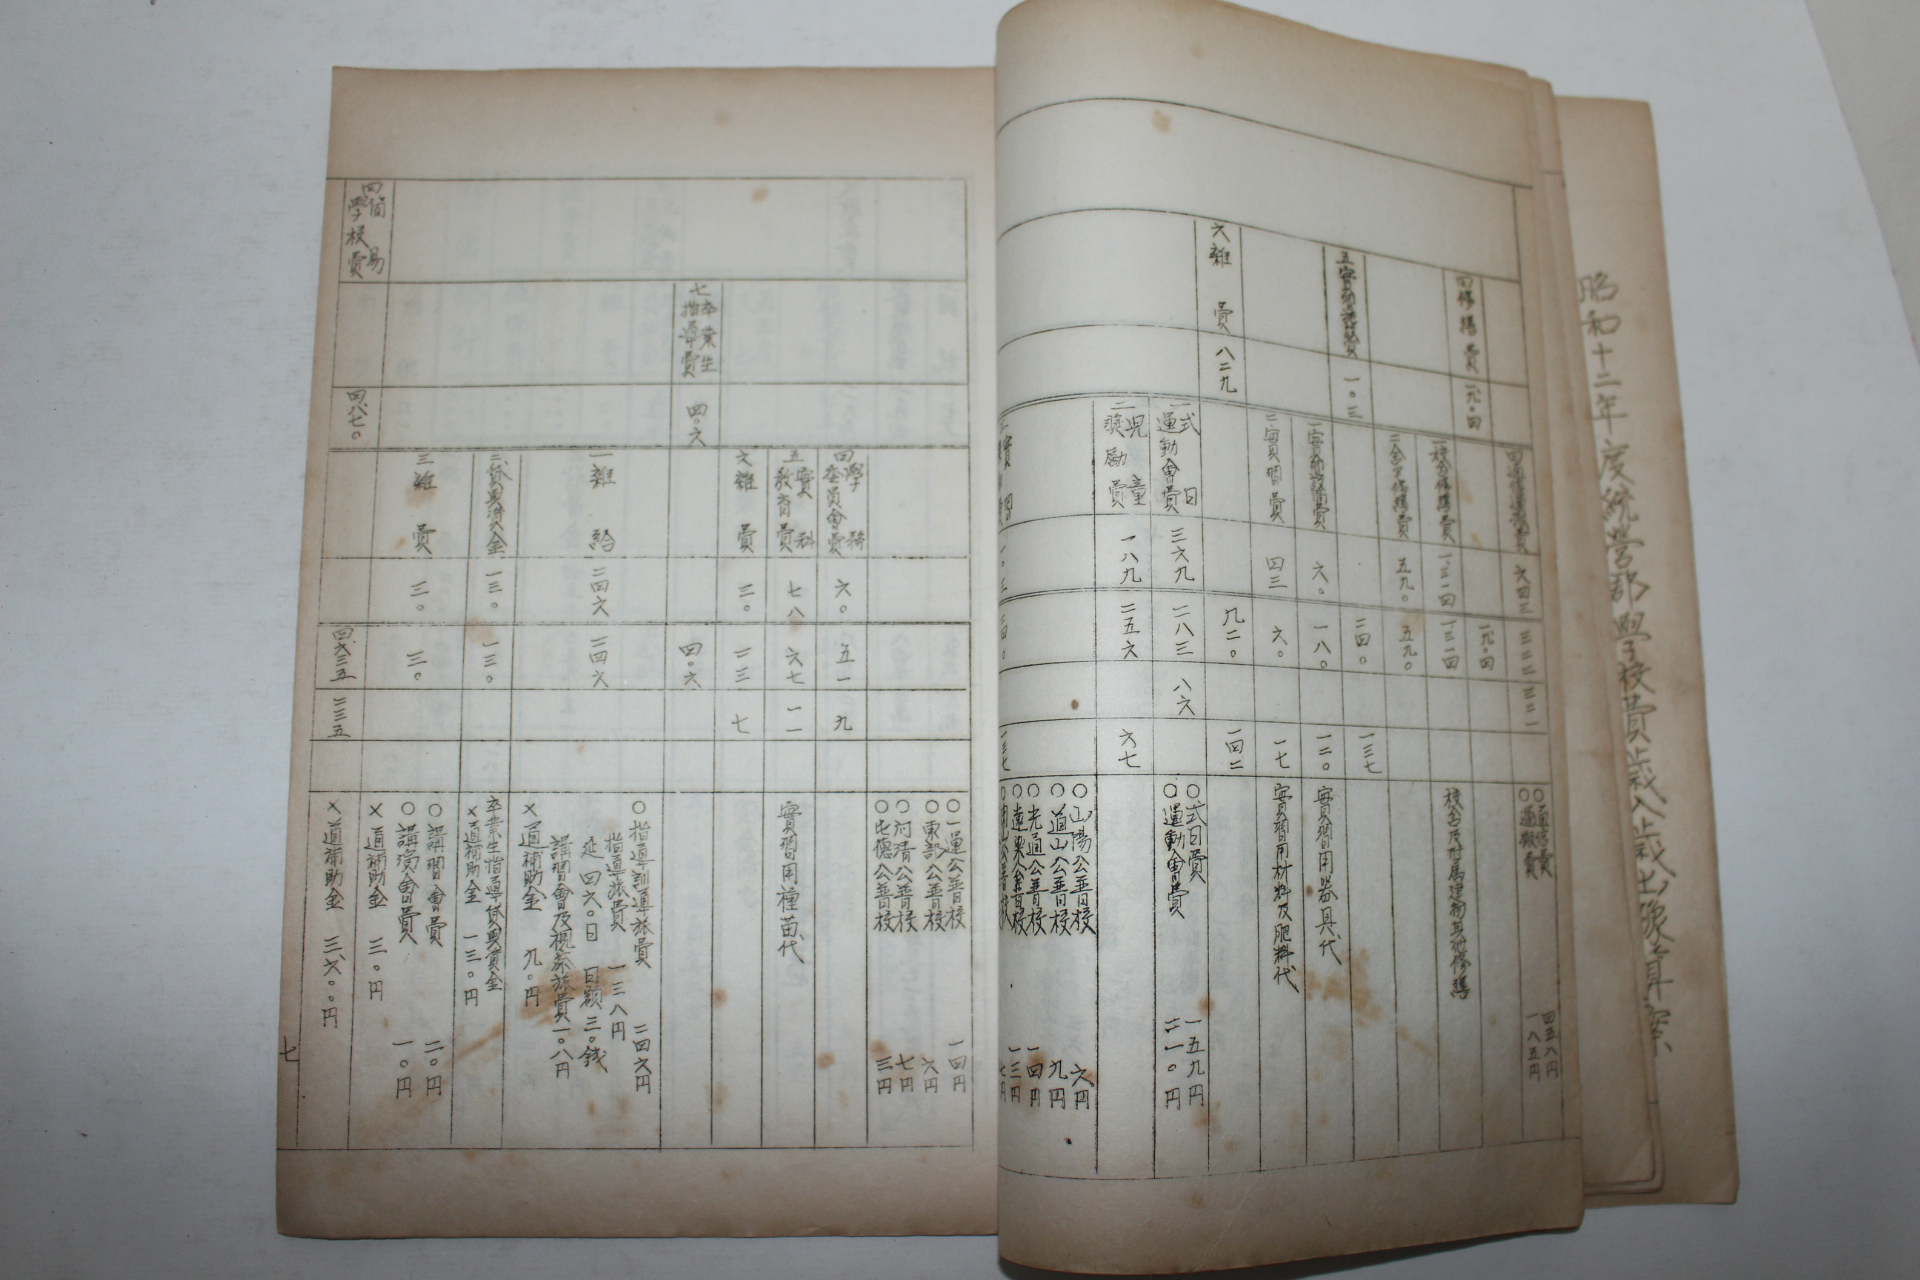 昭和十二年度統營郡學校費歲入歲出豫算案
四修繕費
五實習費
六雜費
八二九
一〇三
一校舍修繕費
二實習費
一式日運動會費
二兒童獎勵費
六四三
五九〇
四三
六〇
三六九
一八九
三二二
五九〇
二四〇
一八〇
六〇
九二〇
二八三
二五六
三二一
八六
一三七
一二〇
一七
一四二
六七
四五八円
一八五円
校舍及附屬建物其他修繕
實習用器具代
實習用材料及肥料代
〇式日費 一五九円
〇運動會費 二一〇円
〇山陽公普校 六円
〇道山公普校 九円
〇光道公普校 一四円
〇遠梁公普校 一三円
七卒業生指導費
四〇六
四簡易學校費
四、八七〇
四學務委員會費
五實科教育費
六雜費
一雜給
二貸與資金
三雜費
六〇
七八
三〇
二四六
一三〇
三〇
五一
六七
二三
四〇六
二四六
一三〇
三〇
四、六三五
九
一一
七
二三五
〇一運公普校 一四円
〇東部公普校 六円
〇河清公普校 七円
〇屯德公普校 三円
實習用種苗代
〇指導訓導旅費 二四六円
指導旅費 一三八円
延四六〇日 日額三〇錢
講習會及視察旅費一〇八円
×道補助金 九〇円
卒業生指導貸與資金
×道補助金 一三〇円
〇講習會費 二〇円
〇講演會費 一〇円
×道補助金 三〇円
×道補助金 三、六〇〇円
七